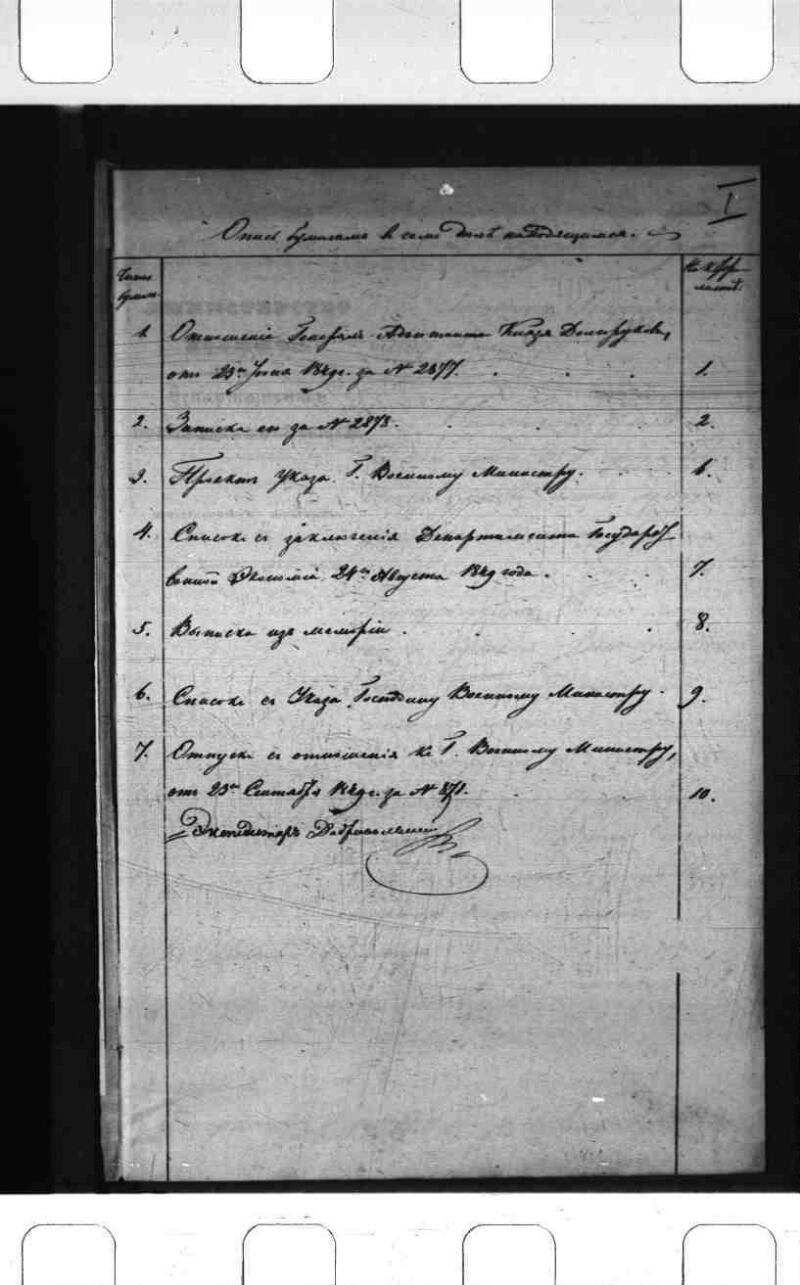 I
Опись бумагамъ въ семъ дѣлѣ находящимся.
Число бумагъ.
№№
листовъ.
1. Отношеніе Генералъ Адъютанта Князя Долгорукова,
отъ 23го Іюня 1849 г. за № 2877. 1.
2. Записка его за № 2878. 2.
3. Проектъ Указа Г. Военному Министру. 6.
4. Списокъ съ заключенія Департамента Государст
венной Экономіи 24го Августа 1849 года. 7.
5. Выписка изъ меморіи. 8.
6. Списокъ съ Указа Господину Военному Министру. 9.
7. Отпускъ съ отношенія къ Г. Военному Министру,
отъ 23го Сентября 1849 г. за № 871. 10.
Экспедиторъ